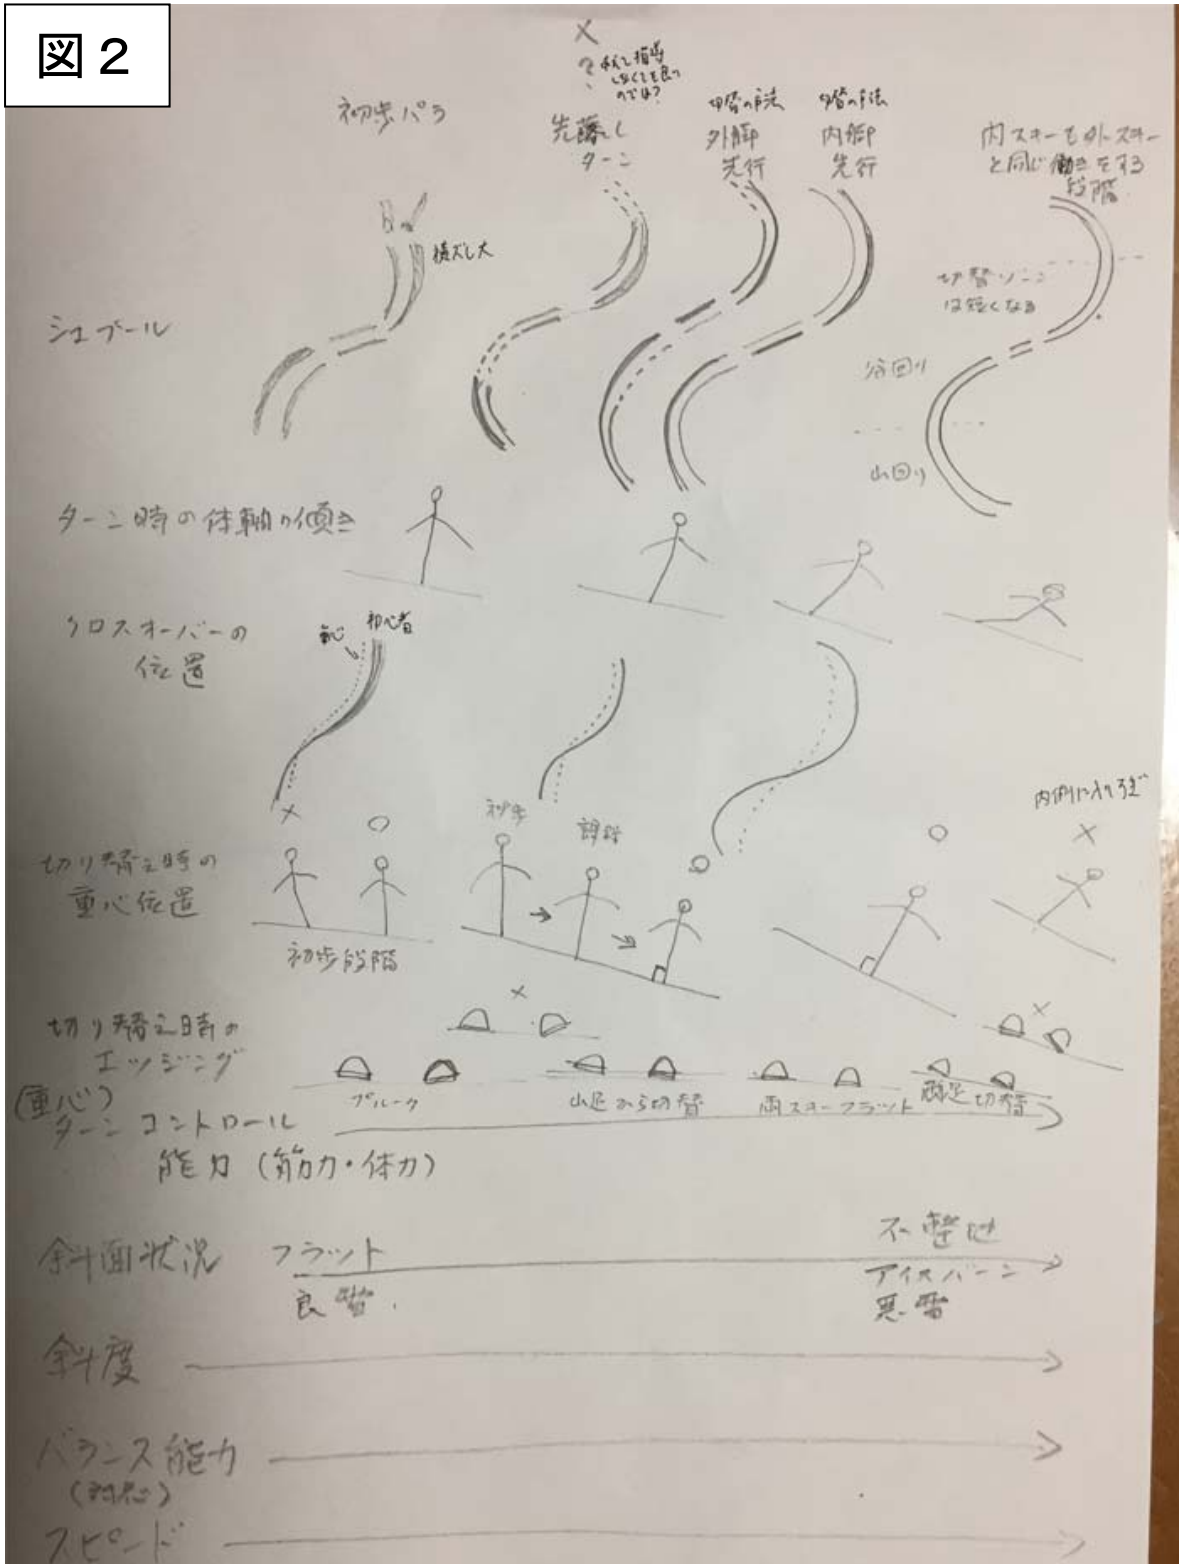 図２
×
?
初歩パラ
先落し
ターン
切替の方法
外脚
先行
切替の方法
内脚
先行
内スキーも外スキー
と同じ働きをする
段階
横ズレ大
シュプール
切替ゾーン
は短くなる
谷回り
山回り
ターン時の体軸の傾き
クロスオーバーの
位置
重心
初心者
内側に入りすぎ
×
○
初歩
○
○
×
切り替え時の
重心位置
初歩段階
×
×
切り替え時の
エッジング
プルーク
山足から切替
両スキーフラット
両足切替
(重心)
ターンコントロール
能力(筋力・体力)
斜面状況
フラット
良雪
不整地
アイスバーン
悪雪
斜度
バランス能力
(対応)
スピード